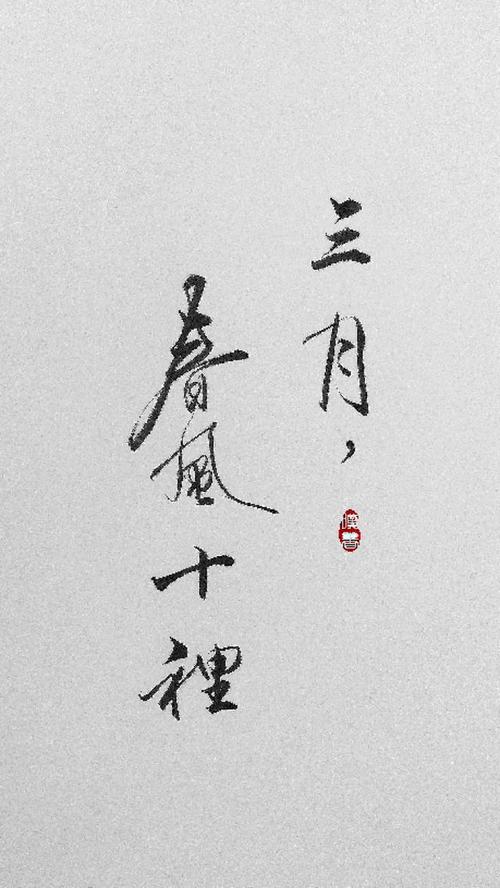 三月，
春風十裡